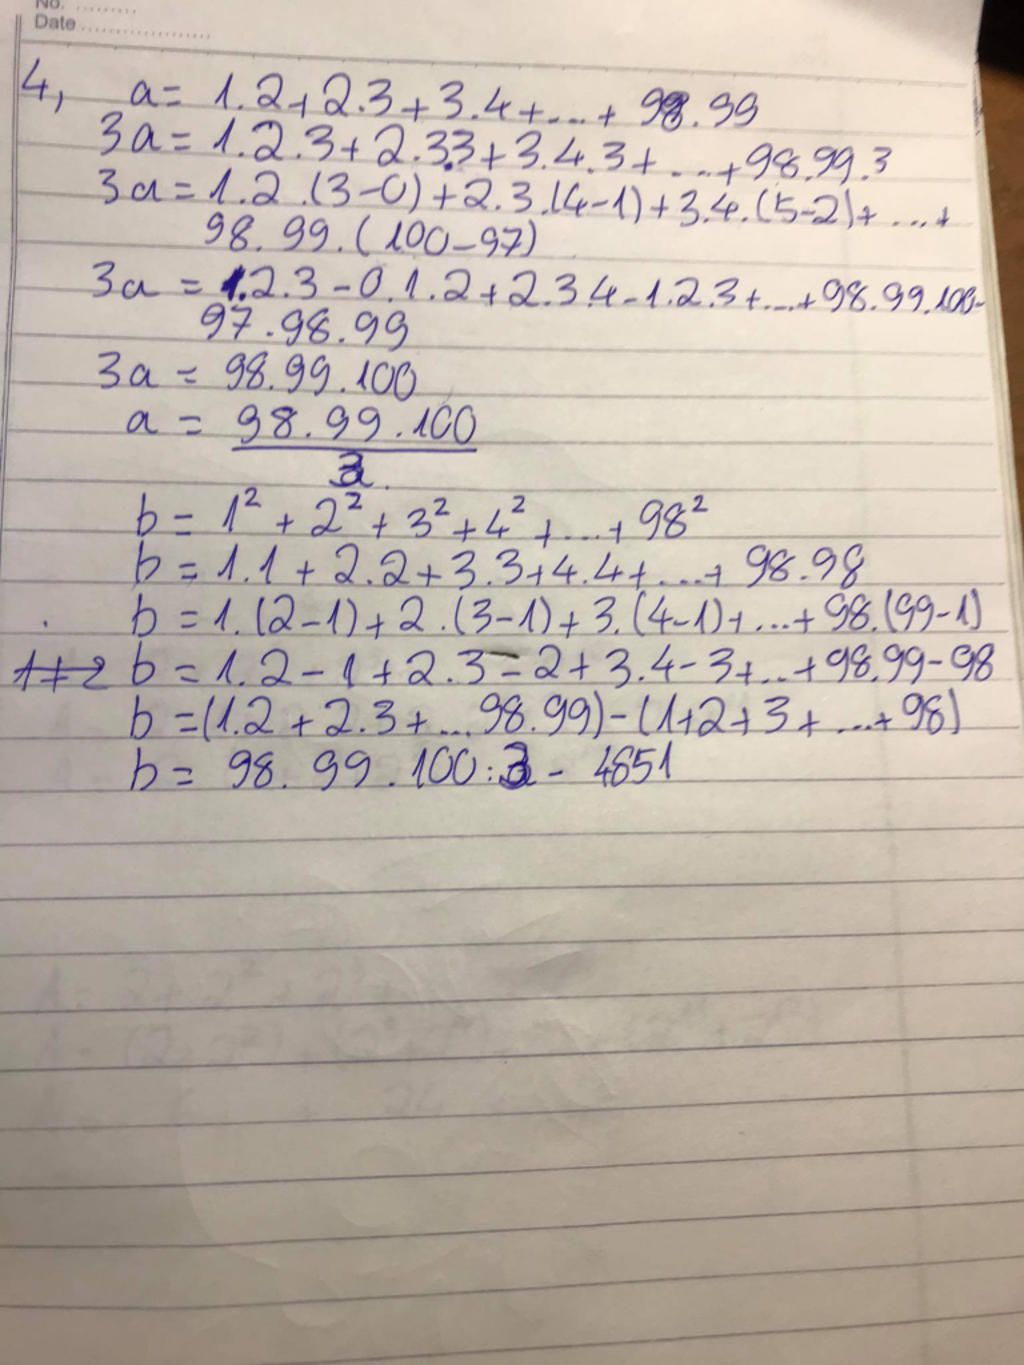 No. .........
Date ....................
4, a = 1.2 + 2.3 + 3.4 + ... + 98.99
3a = 1.2.3 + 2.3.3 + 3.4.3 + ... + 98.99.3
3a = 1.2.(3-0) + 2.3.(4-1) + 3.4.(5-2) + ... +
98.99.(100-97)
3a = 1.2.3 - 0.1.2 + 2.3 4 - 1.2.3 + ... + 98.99.100 -
97.98.99
3a = 98.99.100
a = 98.99.100
3
b = 1² + 2² + 3² + 4² + ... + 98²
b = 1.1 + 2.2 + 3.3 + 4.4 + ... + 98.98
b = 1.(2-1) + 2.(3-1) + 3.(4-1) + ... + 98.(99-1)
b = 1.2 - 1 + 2.3 - 2 + 3.4 - 3 + ... + 98.99 - 98
b = (1.2 + 2.3 + ... 98.99) - (1+2+3 + ... + 98)
b = 98.99.100 : 3 - 4851